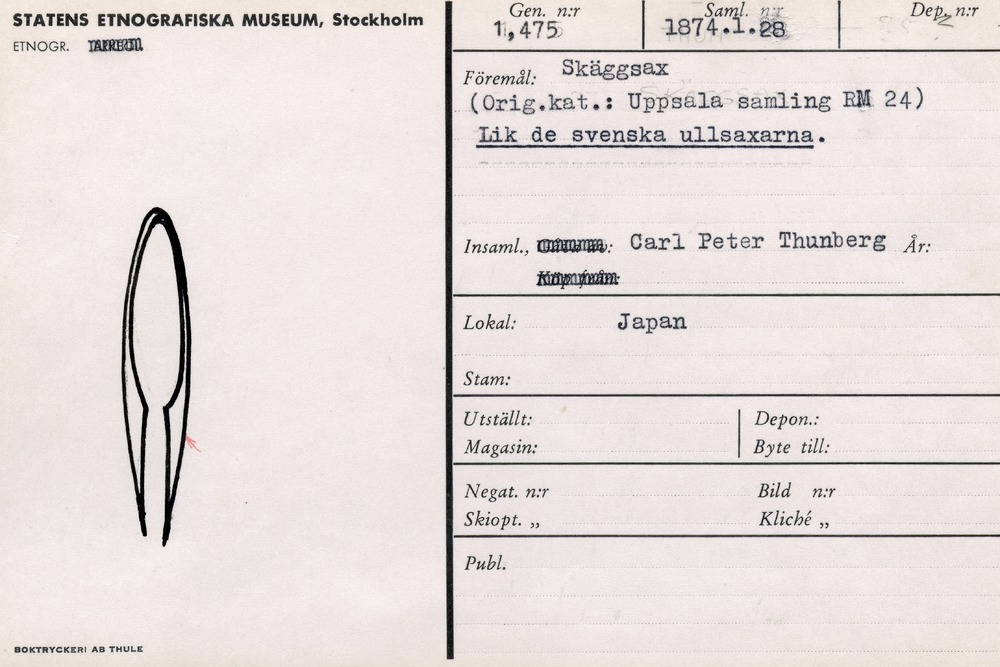 STATENS ETNOGRAFISKA MUSEUM, Stockholm
ETNOGR.
Gen. n:r
11,475
Saml. n:r
1874.1.28
Dep. n:r
Föremål: Skäggsax
(Orig.kat.: Uppsala samling RM 24)
Lik de svenska ullsaxarna.
Insaml., Carl Peter Thunberg År:
Lokal: Japan
Stam:
Utställt: Depon.:
Magasin: Byte till:
Negat. n:r Bild n:r
Skiopt. „ Kliché „
Publ.
BOKTRYCKERI AB THULE